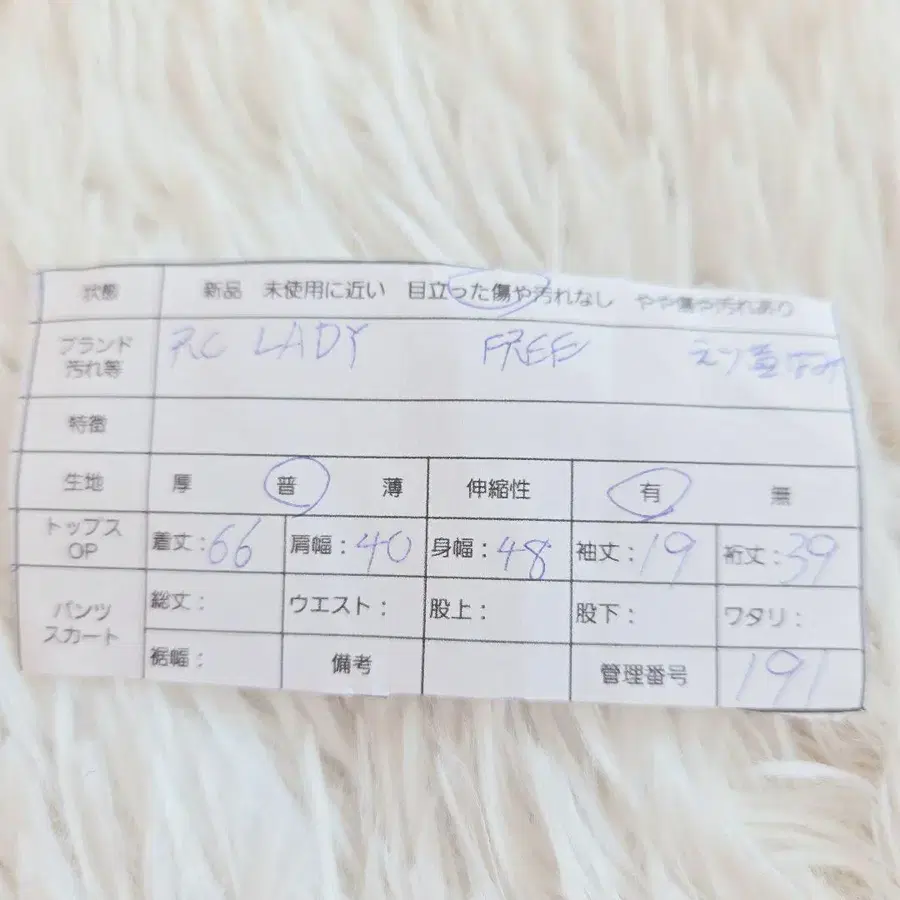 状態 新品 未使用に近い 目立った傷や汚れなし やや傷や汚れあり
ブランド 汚れ等 RC LADY FREE
特徴
生地 厚 普 薄 伸縮性 有 無
トップス OP 着丈:66 肩幅:40 身幅:48 袖丈:19 裄丈:39
パンツ スカート 総丈: ウエスト: 股上: 股下: ワタリ:
裾幅: 備考 管理番号 191